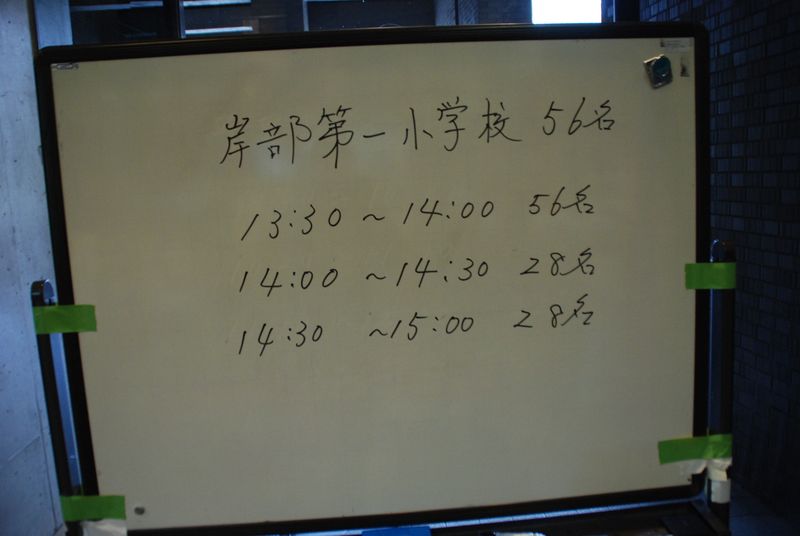 岸部第一小学校 56名
13:30 ~ 14:00 56名
14:00 ~14:30 28名
14:30 ~15:00 28名